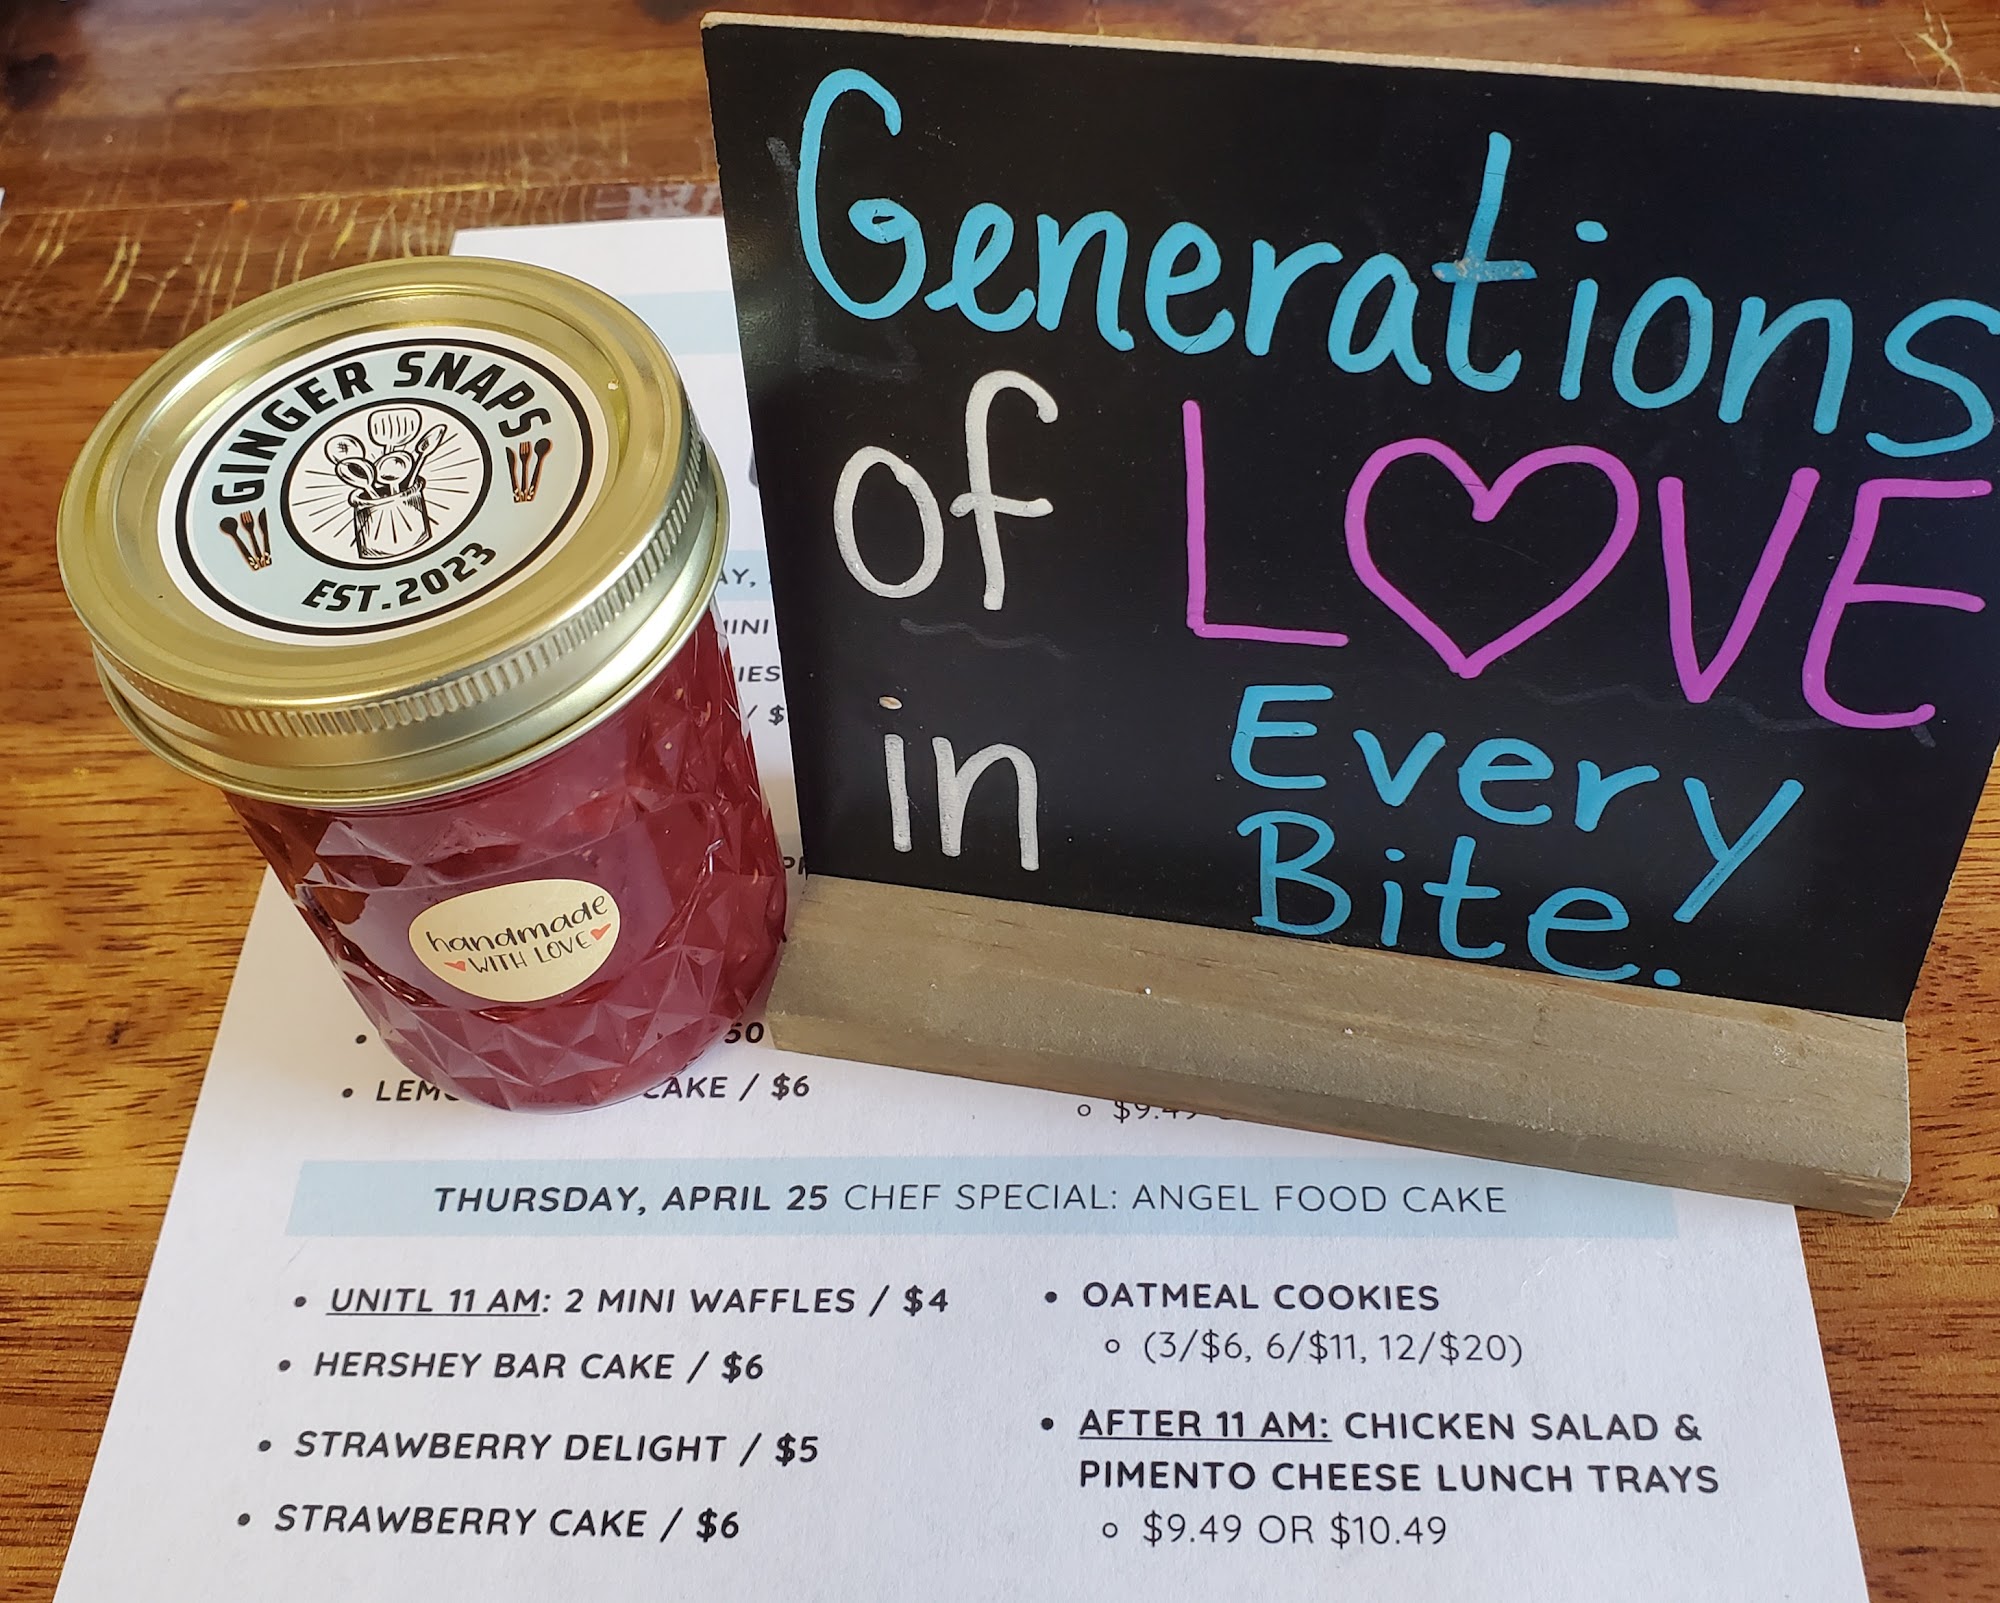 GINGER SNAPS
EST. 2023
handmade
WITH LOVE
Generations
of LOVE
in Every
Bite.
/ $
50
CAKE / $6
THURSDAY, APRIL 25 CHEF SPECIAL: ANGEL FOOD CAKE
UNITL 11 AM: 2 MINI WAFFLES / $4
HERSHEY BAR CAKE / $6
STRAWBERRY DELIGHT / $5
STRAWBERRY CAKE / $6
OATMEAL COOKIES
(3/$6, 6/$11, 12/$20)
AFTER 11 AM: CHICKEN SALAD &
PIMENTO CHEESE LUNCH TRAYS
$9.49 OR $10.49